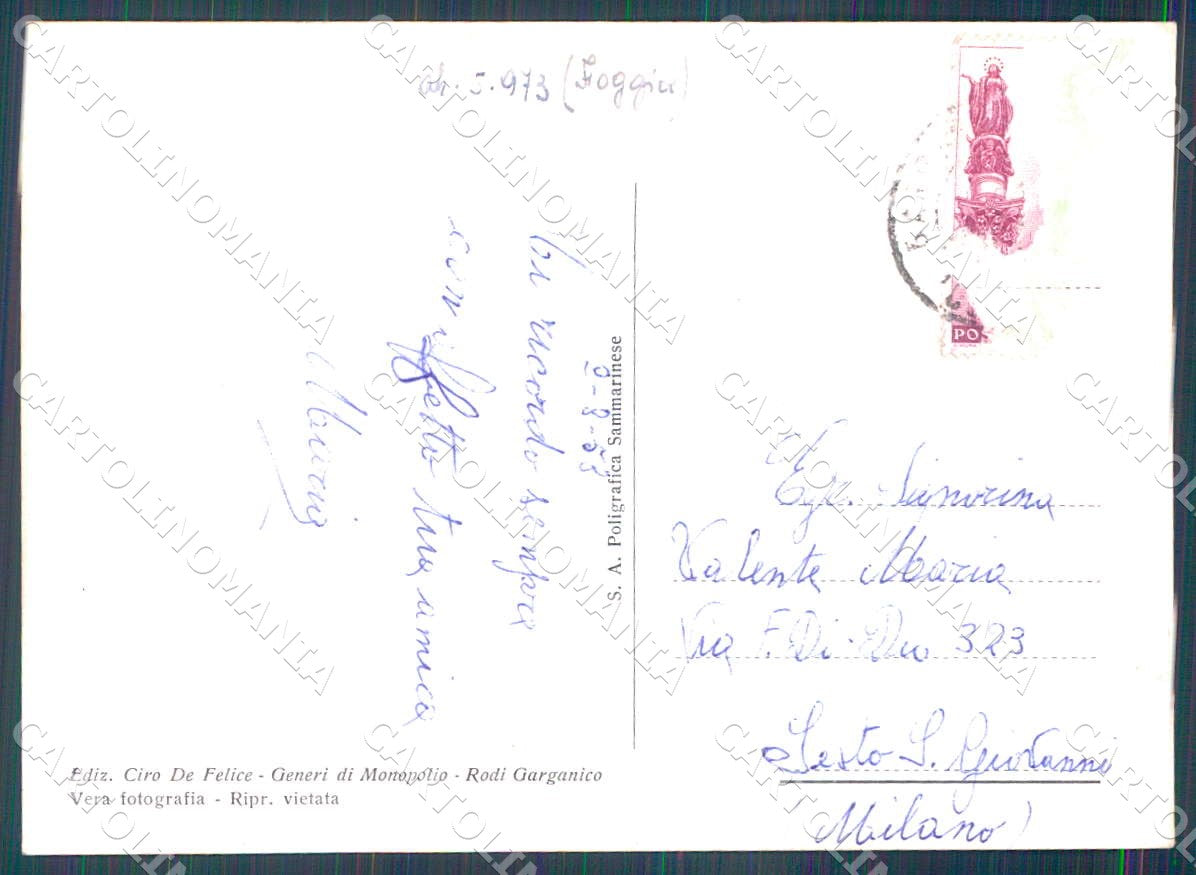 5.973 (Foggia)
PO
ricordo sempre
con affetto tua amica
9-8-53
S. A. Poligrafica Sammarinese
Egr. Signorina
Valente Maria
Via F. Di Dio 323
Sesto S. Giovanni
Milano
Ediz. Ciro De Felice - Generi di Monopolio - Rodi Garganico
Vera fotografia - Ripr. vietata
CARTOLINOMANIA